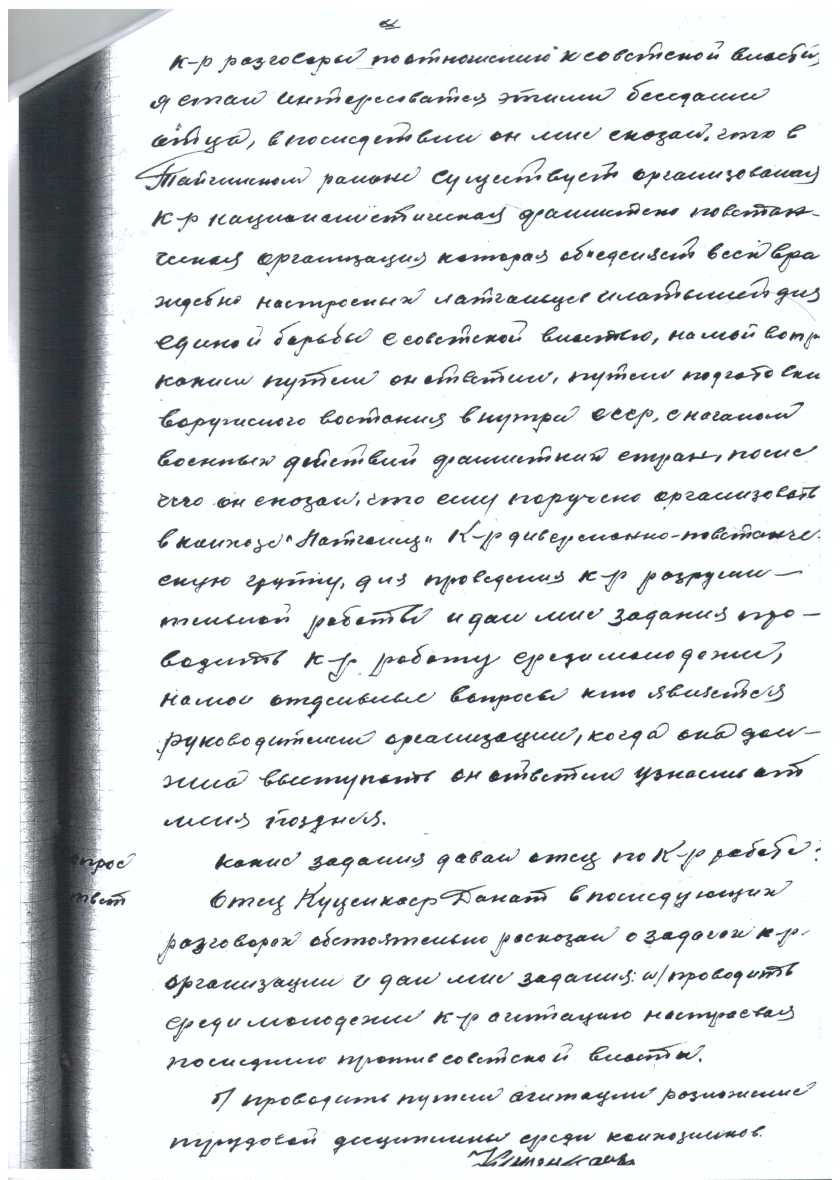 к-р разговоры по отношению к советской власти,
я стал интересоватся этими беседами
отца, в посиледствии он мне сказал, что в
Тайгинском районе существует организованая
к-р националистическая фашистско повстан-
ческая организация которая обьеденяет всех вра
ждебно настроеных латгальцев и латышей для
единой борьбы с советской властью, на мой вопр
каким путем он ответил, путем подготовки
воружоного востания внутри ссср, с началом
военных действий фашистких стран, после
чего он сказал, что ему поручено организовать
в колхозе "Латгалиц" к-р диверсионно-повстанче
скую групу, для проведения к-р разруши-
тельной работы и дал мне задания про-
водить к-р работу среди молодежи,
на мои отдельные вопросы кто является
руководителем организации, когда она дол-
жна выступать он ответил узнаешь от
меня поздней.
опрос какие задания давал отец по к-р работе?
твет Отец Куценкаср Данат в последующих
разговорах обстоятельно расказал о задачах к-р.
организации и дал мне задания: а/ проводить
среди молодежи к-р агитацию настраевая
последнию против советской власти.
б/ проводить путем агитации разложение
трудовой десциплины среди колхозников.